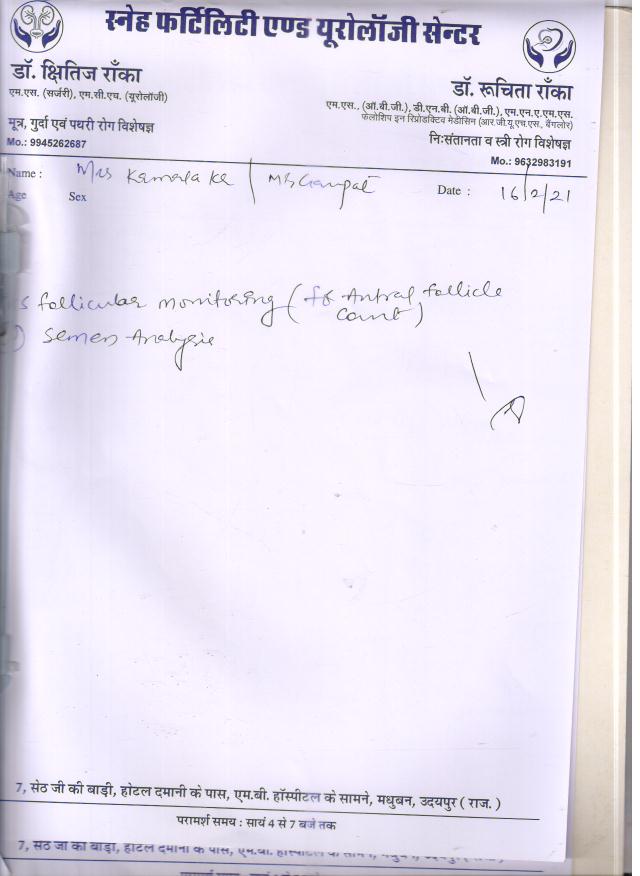 स्नेह फर्टिलिटी एण्ड यूरोलॉजी सेन्टर
डॉ. क्षितिज राँका
एम.एस. (सर्जरी), एम.सी.एच. (यूरोलॉजी)
मूत्र, गुर्दा एवं पथरी रोग विशेषज्ञ
Mo.: 9945262687
डॉ. रूचिता राँका
एम.एस., (ऑ.बी.जी.), डी.एन.बी. (ऑ.बी.जी.), एम.एन.ए.एम.एस.
फेलोशिप इन रिप्रोडक्टिव मेडीसिन (आर.जी.यू.एच.एस., बैंगलोर)
निःसंतानता व स्त्री रोग विशेषज्ञ
Mo.: 9632983191
Name : Mrs Kamla / Date : 16/2/21
Age Sex
follicular monitoring ( Antral follicle
Count)
) Semen Analysis
7, सेठ जी की बाड़ी, होटल दमानी के पास, एम.बी. हॉस्पीटल के सामने, मधुबन, उदयपुर ( राज. )
परामर्श समय : सायं 4 से 7 बजे तक
7, सेठ जी की बाड़ी, होटल दमानी के पास, एम.बी.